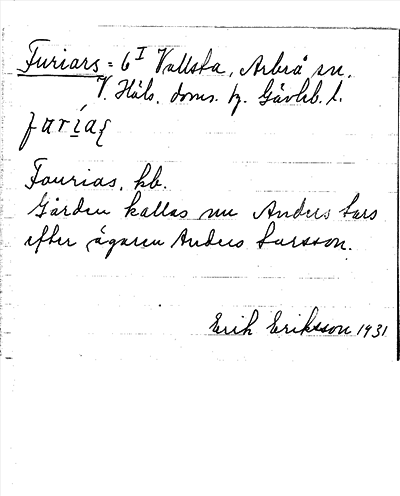 Furiars = 6 I Vallsta, Arbrå sn.
V. Häls. doms. hz. Gävleb. l.
Faurias, hb.
Gården kallas nu Anders Lars
efter ägaren Anders Larsson.
Erik Eriksson 1931